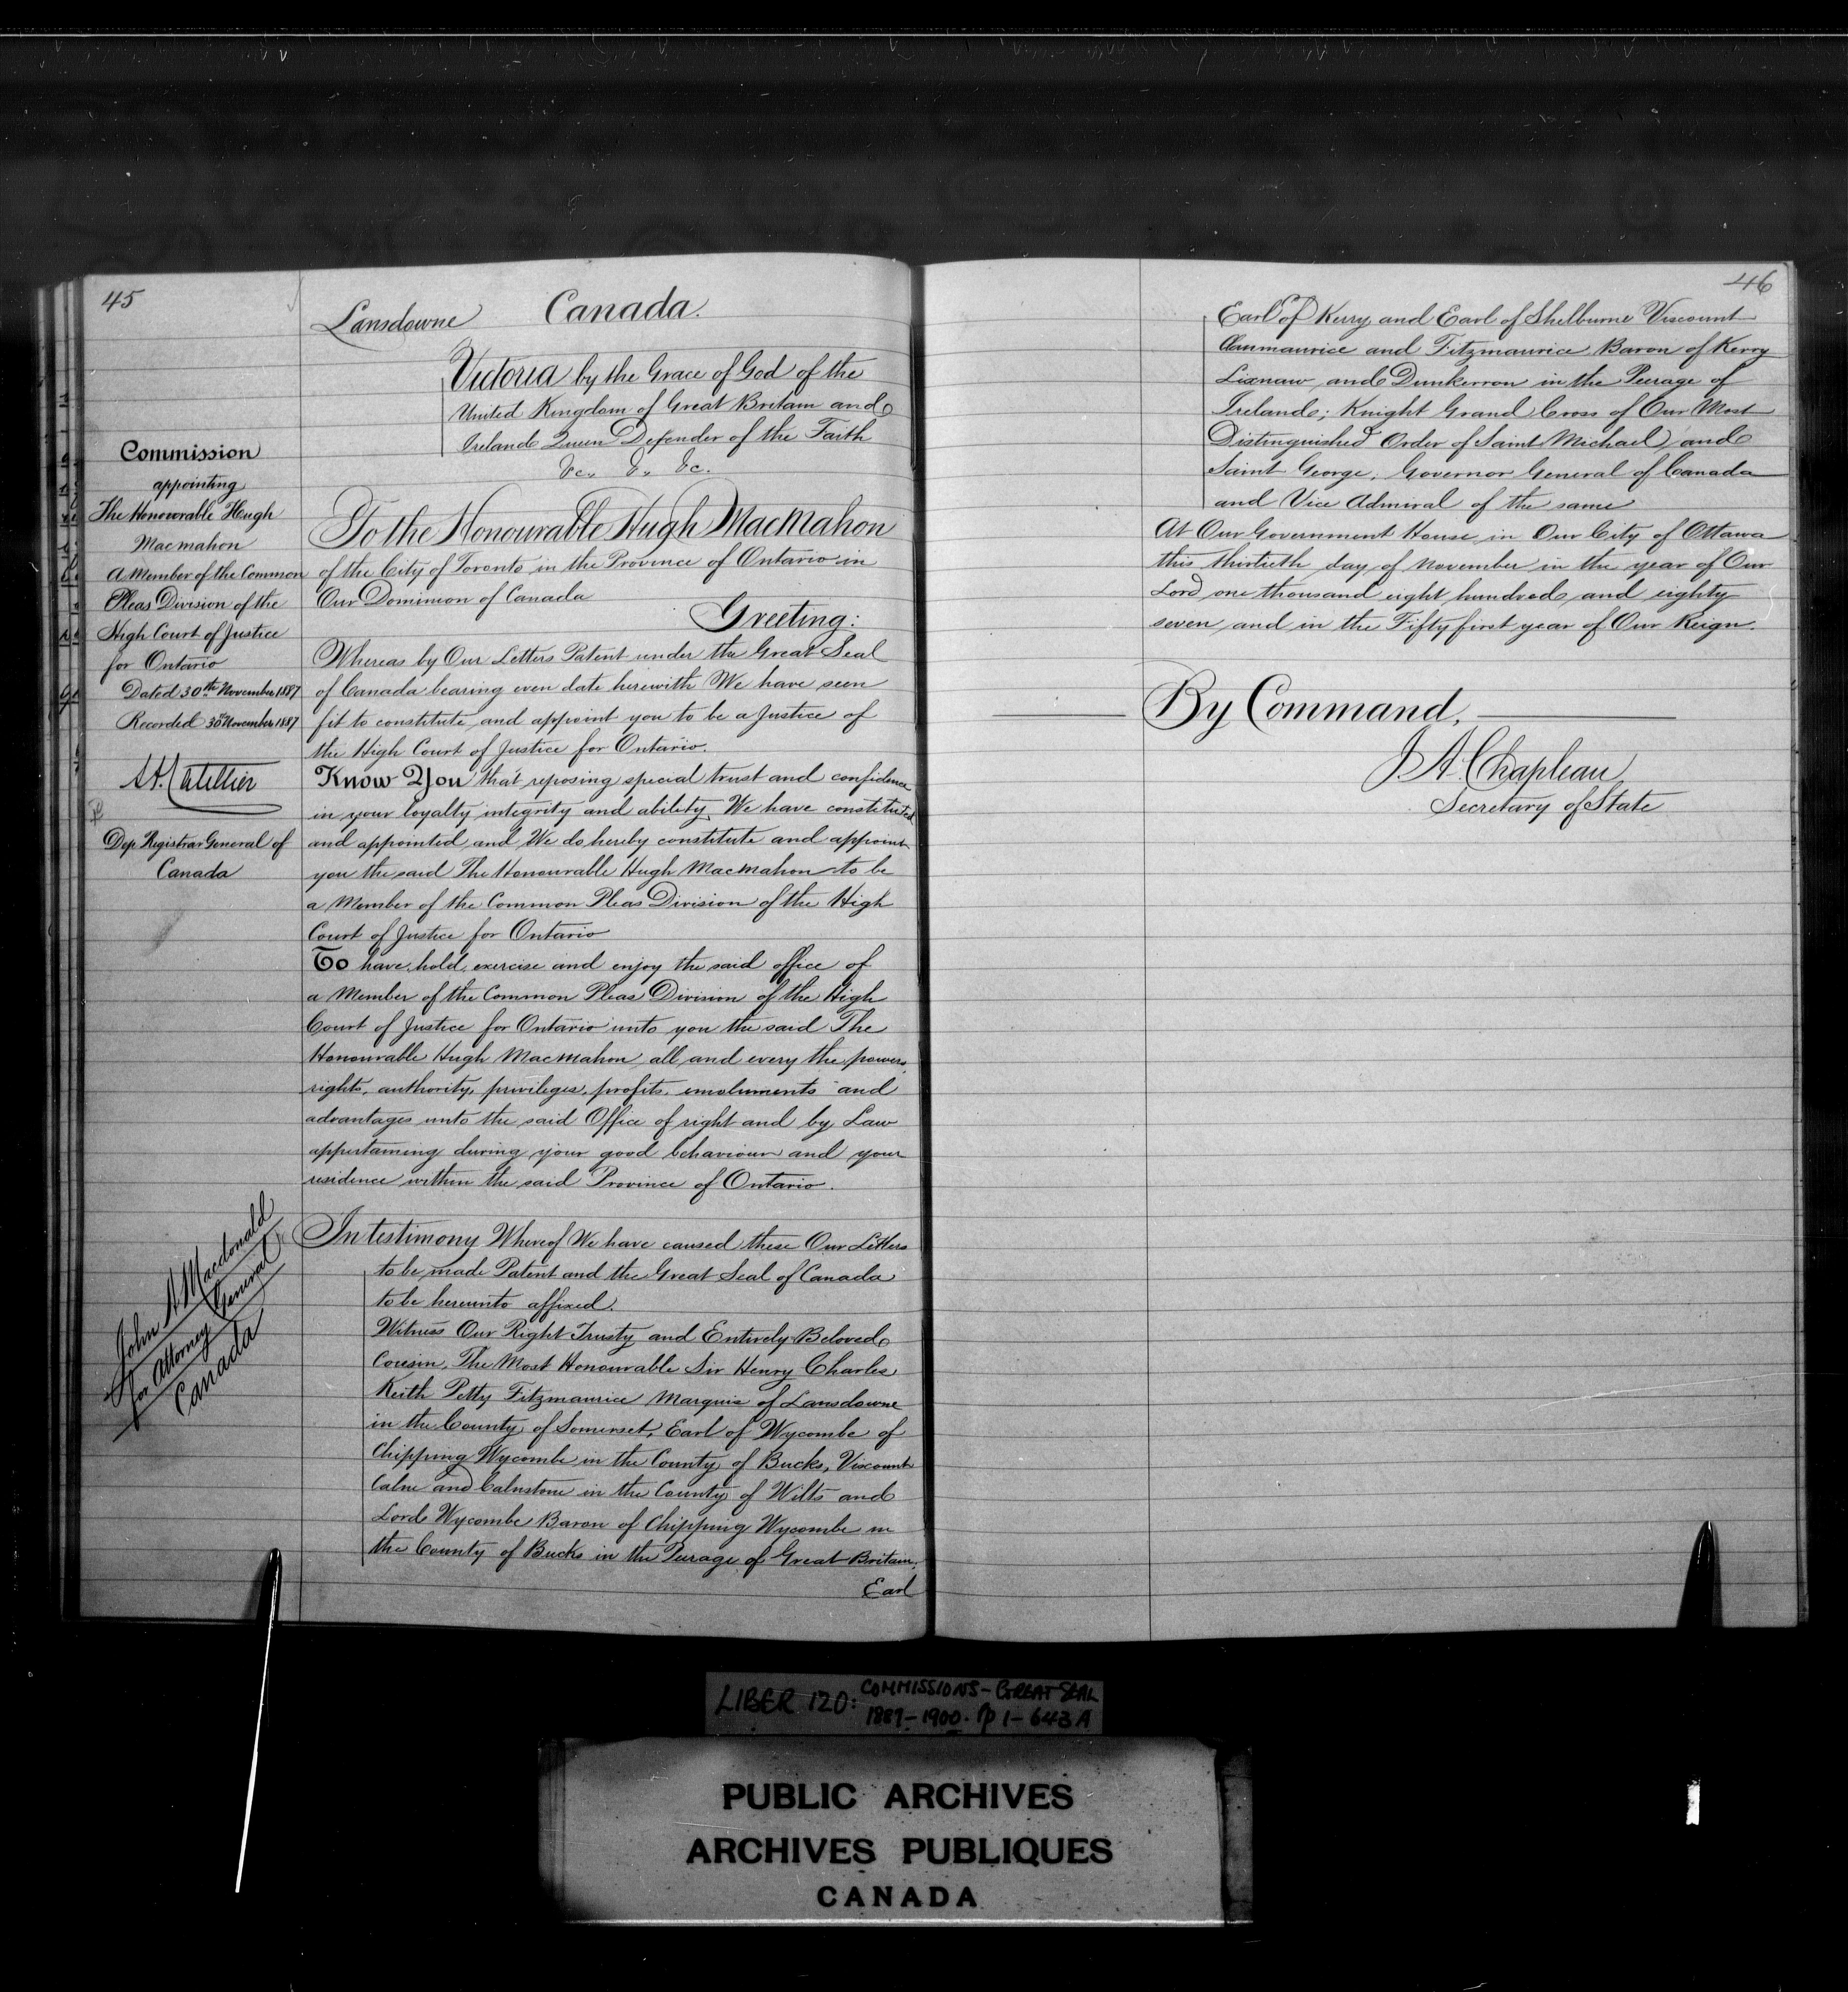 45
Lansdowne Canada.
Victoria by the Grace of God of the
United Kingdom of Great Britain and
Ireland Queen Defender of the Faith
&c., &., &c.
Commission
appointing
The Honourable Hugh
Macmahon
A Member of the Common
Pleas Division of the
High Court of Justice
for Ontario
Dated 30th November 1887
Recorded 30th November 1887
A. Catellier
Dep Registrar General of
Canada
To the Honourable Hugh MacMahon
of the City of Toronto in the Province of Ontario in
Our Dominion of Canada
Greeting:
Whereas by Our Letters Patent under the Great Seal
of Canada bearing even date herewith We have seen
fit to constitute and appoint you to be a Justice of
the High Court of Justice for Ontario.
Know You that reposing special trust and confidence
in your loyalty integrity and ability, We have constituted
and appointed and We do hereby constitute and appoint
you the said The Honourable Hugh Macmahon to be
a Member of the Common Pleas Division of the High
Court of Justice for Ontario
To have, hold, exercise and enjoy the said office of
a Member of the Common Pleas Division of the High
Court of Justice for Ontario unto you the said The
Honourable Hugh Macmahon all and every the powers,
rights, authority, privileges, profits, emoluments and
advantages unto the said Office of right and by Law
appertaining during your good behaviour and your
residence within the said Province of Ontario.
John A Macdonald
for Attorney General
Canada
In testimony Whereof We have caused these Our Letters
to be made Patent and the Great Seal of Canada
to be hereunto affixed.
Witness Our Right Trusty and Entirely Beloved
Cousin, The Most Honourable Sir Henry Charles
Keith Petty Fitzmaurice Marquis of Lansdowne
in the County of Somerset, Earl of Wycombe of
Chipping Wycombe in the County of Bucks, Viscount
Calne and Calnstone in the County of Wilts and
Lord Wycombe Baron of Chipping Wycombe in
the County of Bucks in the Peerage of Great Britain,
Earl
46
Earl of Kerry and Earl of Shelburne Viscount
Clanmaurice and Fitzmaurice Baron of Kerry
Lixnaw and Dunkerron in the Peerage of
Ireland; Knight Grand Cross of Our Most
Distinguished Order of Saint Michael and
Saint George, Governor General of Canada
and Vice Admiral of the same
At Our Government House in Our City of Ottawa
this thirtieth day of November in the year of Our
Lord one thousand eight hundred and eighty
seven and in the Fifty first year of Our Reign.
By Command,
J. A. Chapleau
Secretary of State
LIBER 120: COMMISSIONS - GREAT SEAL
1887-1900. pp 1-643A
PUBLIC ARCHIVES
ARCHIVES PUBLIQUES
CANADA